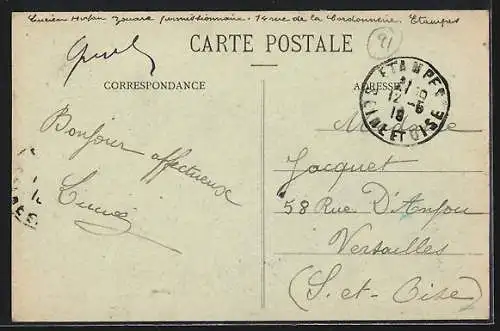 Lucien zouave permissionnaire. 14 rue de la Cordonnerie, Etampes
91
CARTE POSTALE
CORRESPONDANCE
ADRESSE
ETAMPES
12 -5
18
SEINE ET OISE
Bonjour affectueux
Lucien
Jacquet
58 Rue D'Anjou
Versailles
(S.-et-Oise)